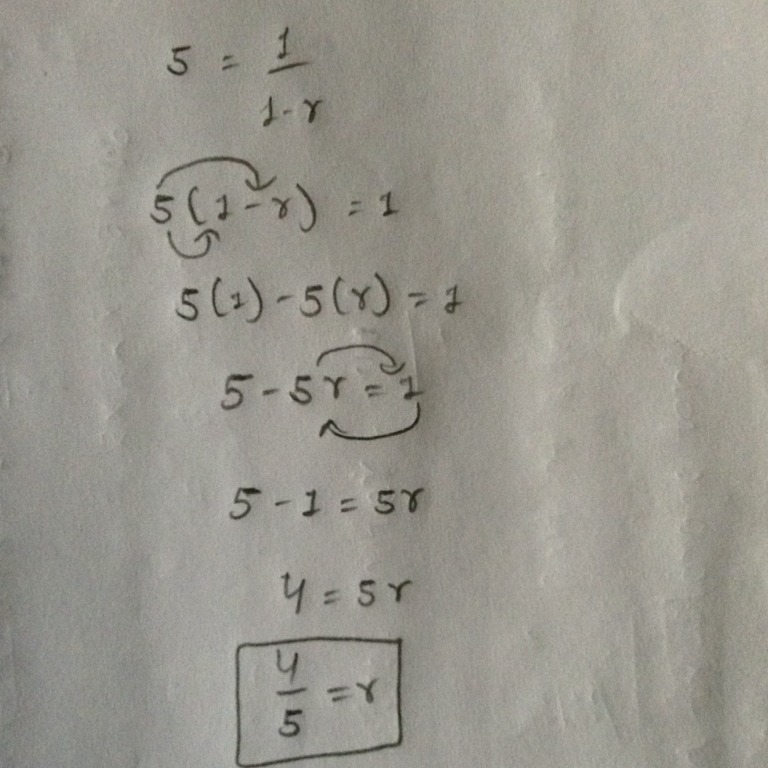 5 = 1/(1-r)
5(1-r) = 1
5(1)-5(r) = 1
5-5r = 1
5-1 = 5r
4 = 5r
4/5 = r